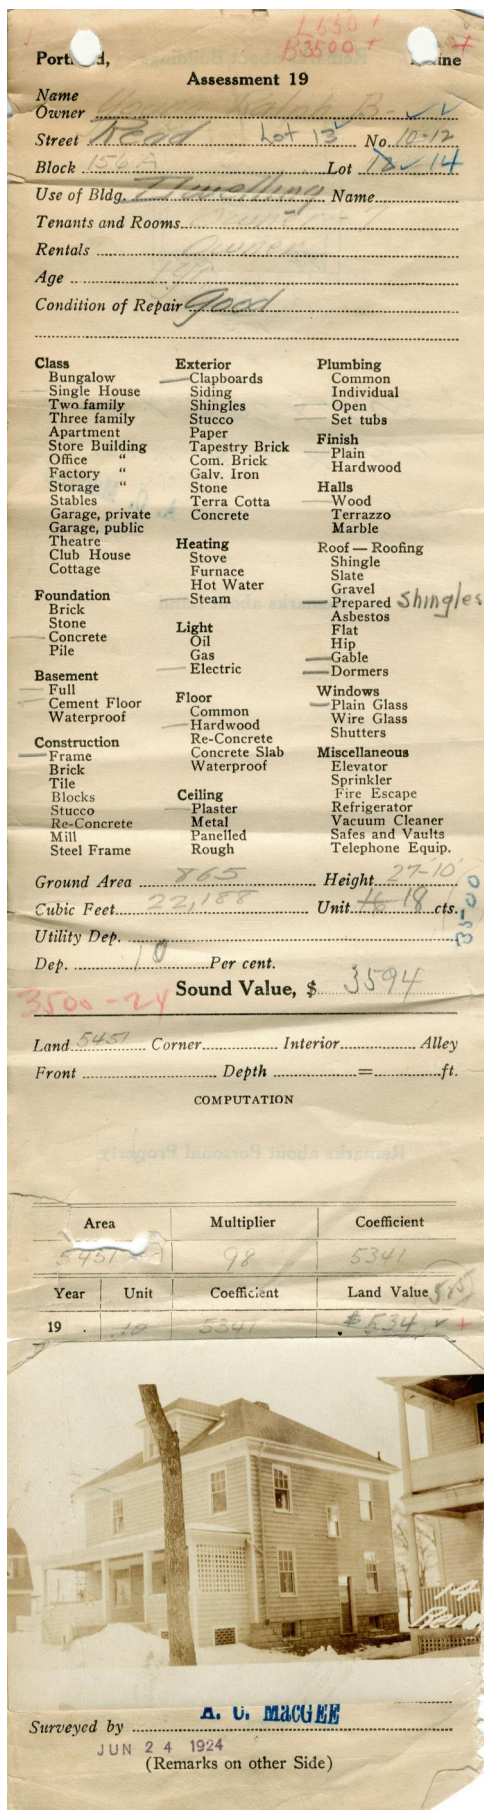 L550 +
B3500 +
Portland, Maine
Assessment 19
Name
Owner Ralph B-
Street Read Lot 13 No. 10-12
Block 156 A Lot 14
Use of Bldg. Dwelling Name
Tenants and Rooms 7
Rentals Owner
Age
Condition of Repair good
Class
Bungalow
Single House
Two family
Three family
Apartment
Store Building
Office "
Factory "
Storage "
Stables
Garage, private
Garage, public
Theatre
Club House
Cottage
Foundation
Brick
Stone
Concrete
Pile
Basement
Full
Cement Floor
Waterproof
Construction
Frame
Brick
Tile
Blocks
Stucco
Re-Concrete
Mill
Steel Frame
Exterior
Clapboards
Siding
Shingles
Stucco
Paper
Tapestry Brick
Com. Brick
Galv. Iron
Stone
Terra Cotta
Concrete
Heating
Stove
Furnace
Hot Water
Steam
Light
Oil
Gas
Electric
Floor
Common
Hardwood
Re-Concrete
Concrete Slab
Waterproof
Ceiling
Plaster
Metal
Panelled
Rough
Plumbing
Common
Individual
Open
Set tubs
Finish
Plain
Hardwood
Halls
Wood
Terrazzo
Marble
Roof — Roofing
Shingle
Slate
Gravel
Prepared Shingles
Asbestos
Flat
Hip
Gable
Dormers
Windows
Plain Glass
Wire Glass
Shutters
Miscellaneous
Elevator
Sprinkler
Fire Escape
Refrigerator
Vacuum Cleaner
Safes and Vaults
Telephone Equip.
Ground Area 865 Height 27-10
Cubic Feet 22,188 Unit 16 18 cts.
3500
Utility Dep.
Dep. 10 Per cent.
Sound Value, $ 3594
3500-24
Land 5451 Corner Interior Alley
Front Depth = ft.
COMPUTATION
Remarks about Personal Property
Area Multiplier Coefficient
5451 98 5341
Year Unit Coefficient Land Value 525
19 . .10 5341 $534 +
Surveyed by A. C. MacGEE
JUN 24 1924
(Remarks on other Side)